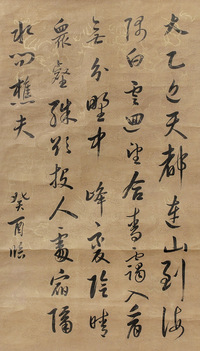 太乙近天都連山到海
隅白雲迴望合青靄入看
無分野中峰變陰晴
眾壑殊欲投人處宿隔
水問樵夫
癸酉臨